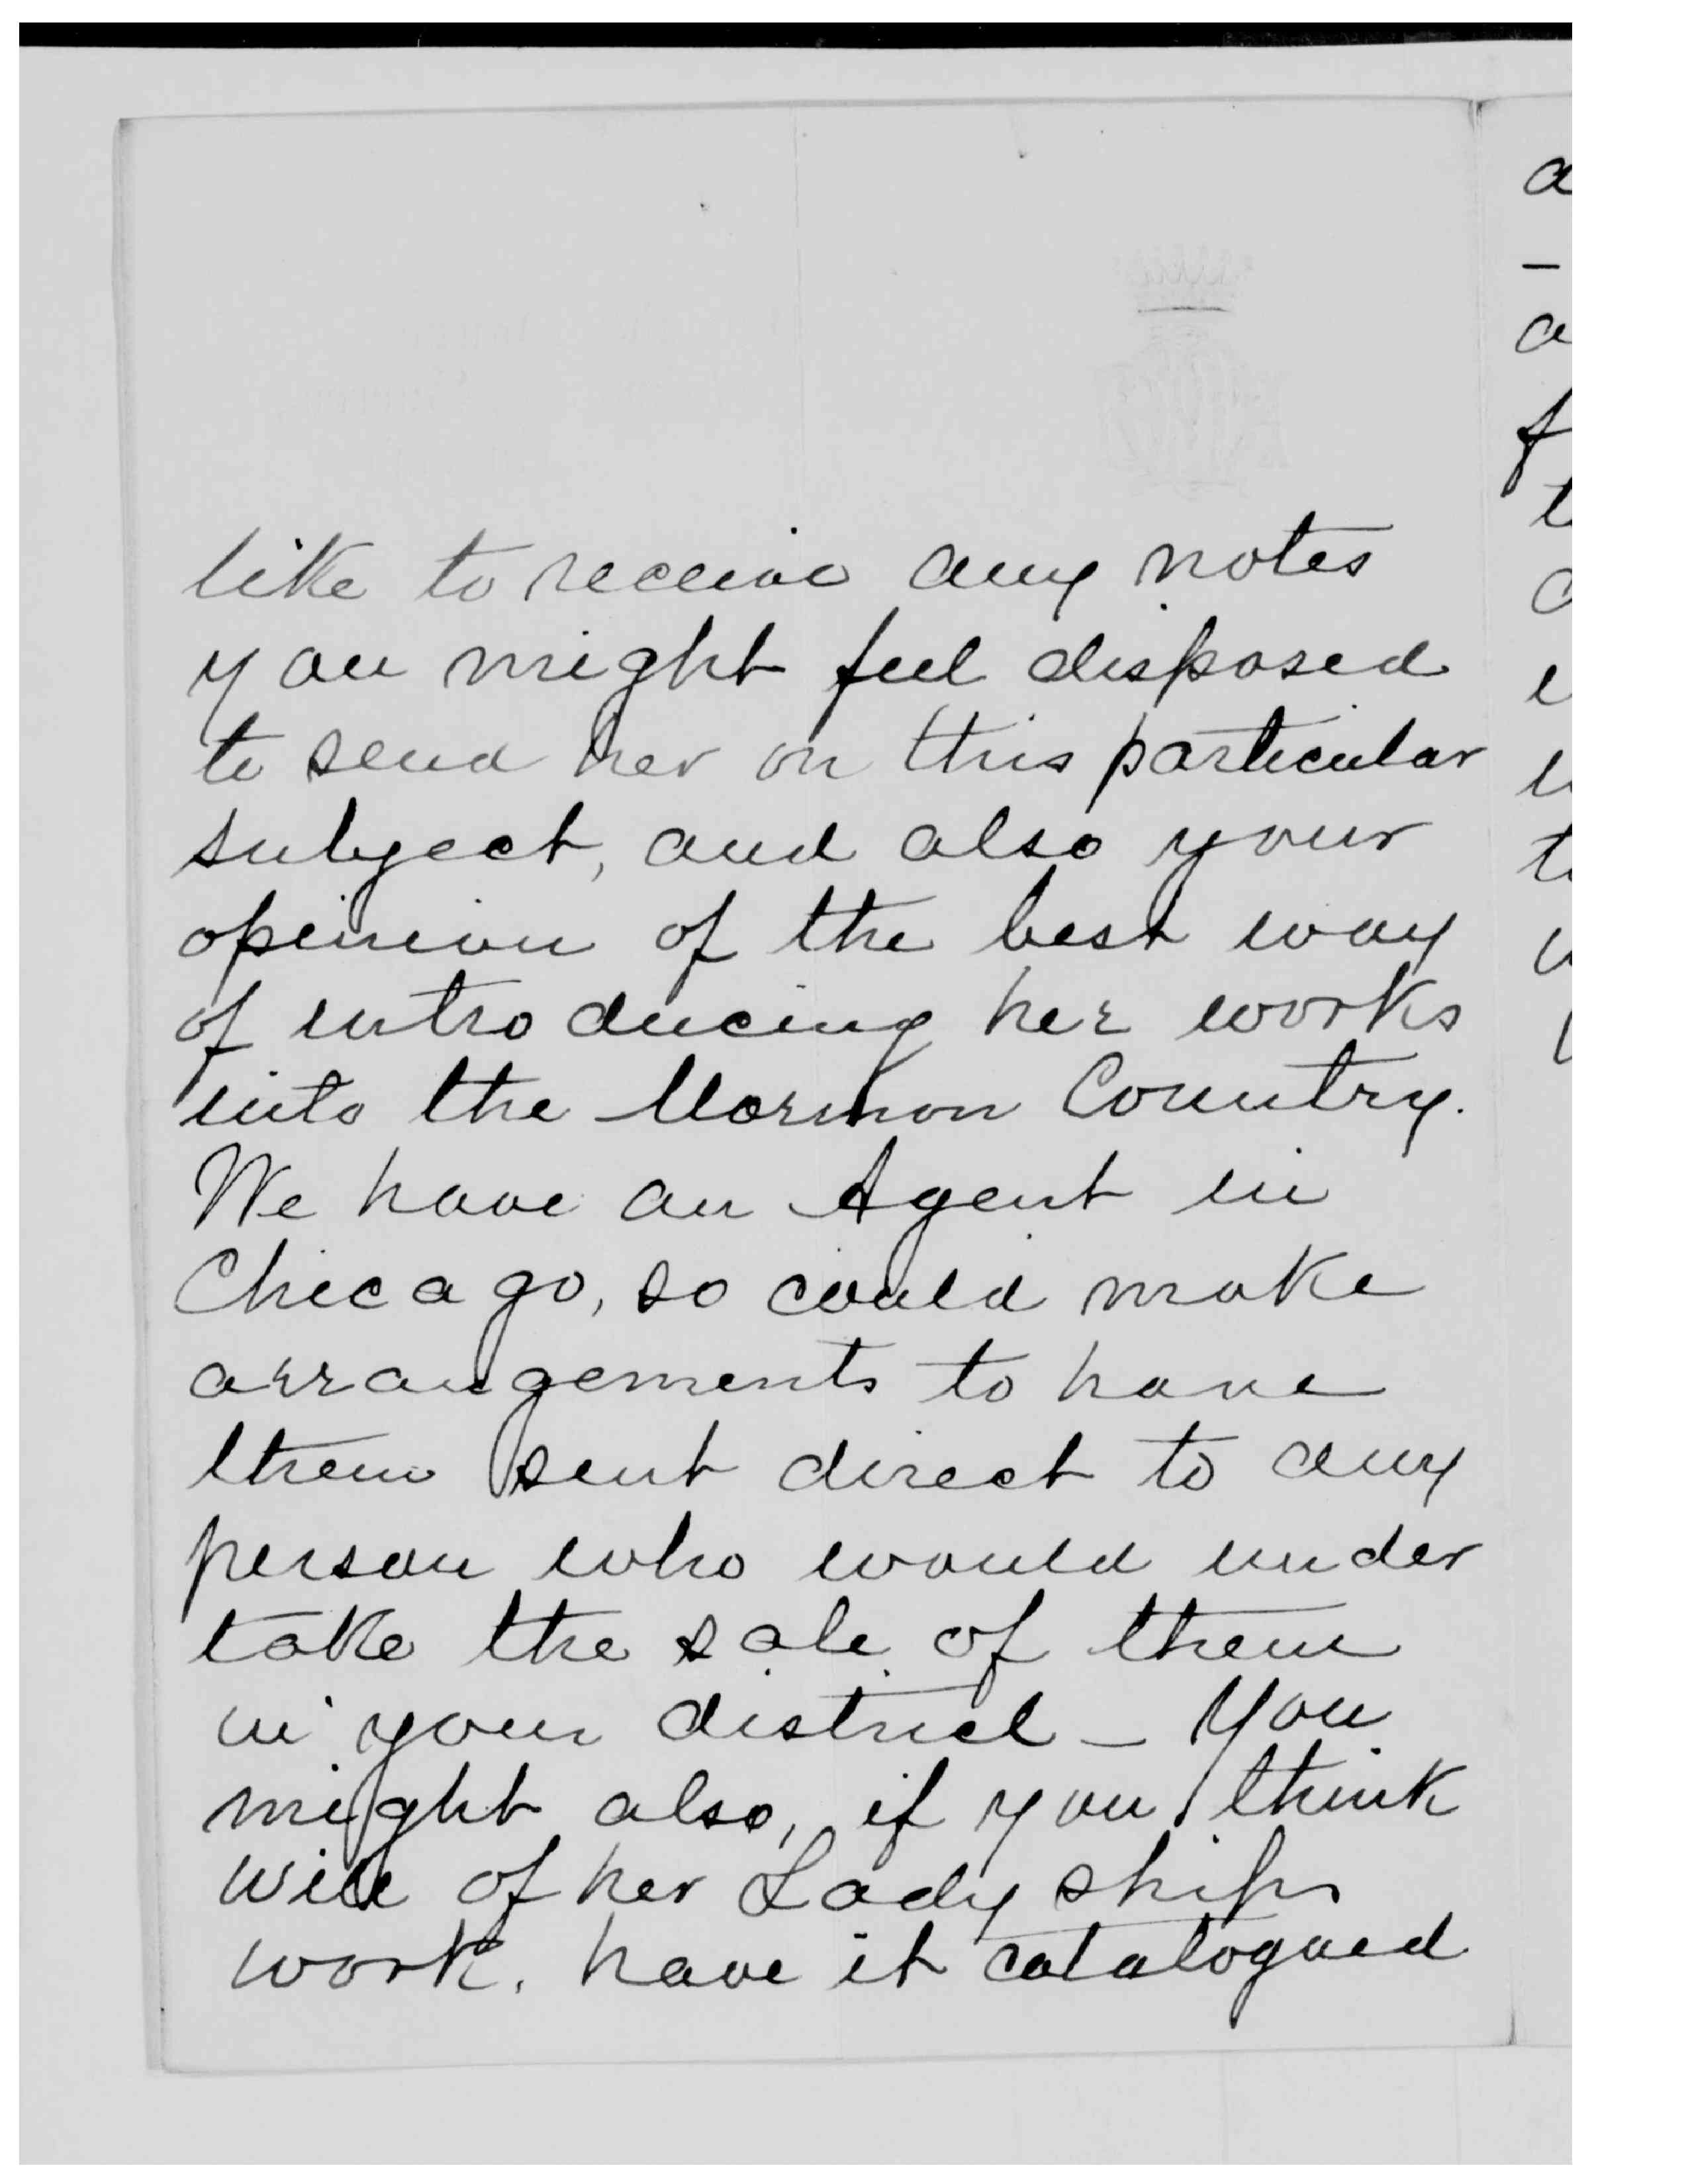 like to receive any notes
you might feel disposed
to send her on this particular
subject, and also your
opinion of the best way
of introducing her works
into the Mormon Country.
We have an Agent in
Chicago, so could make
arrangements to have
them sent direct to any
person who would under
take the sale of them
in your district – You
might also, if you think
well of her Ladyships
work, have it catalogued